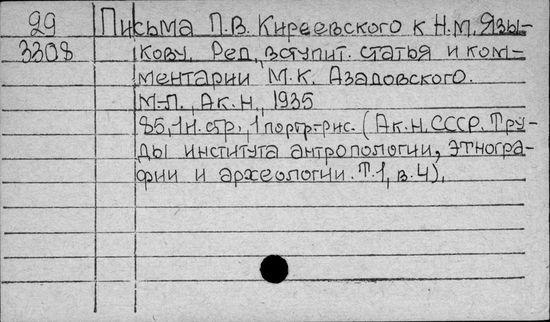 29 Письма П.В. Киреевского к Н.М. Язы-
3308 кову. Ред., вступит. статья и ком-
ментарии М.К. Азадовского.
М-Л., Ак.н., 1935
85,1н.стр., 1 портр-рис. (Ак.н.СССР. Тру-
ды института антропологии, этногра-
фии и археологии. Т.1, в.4).